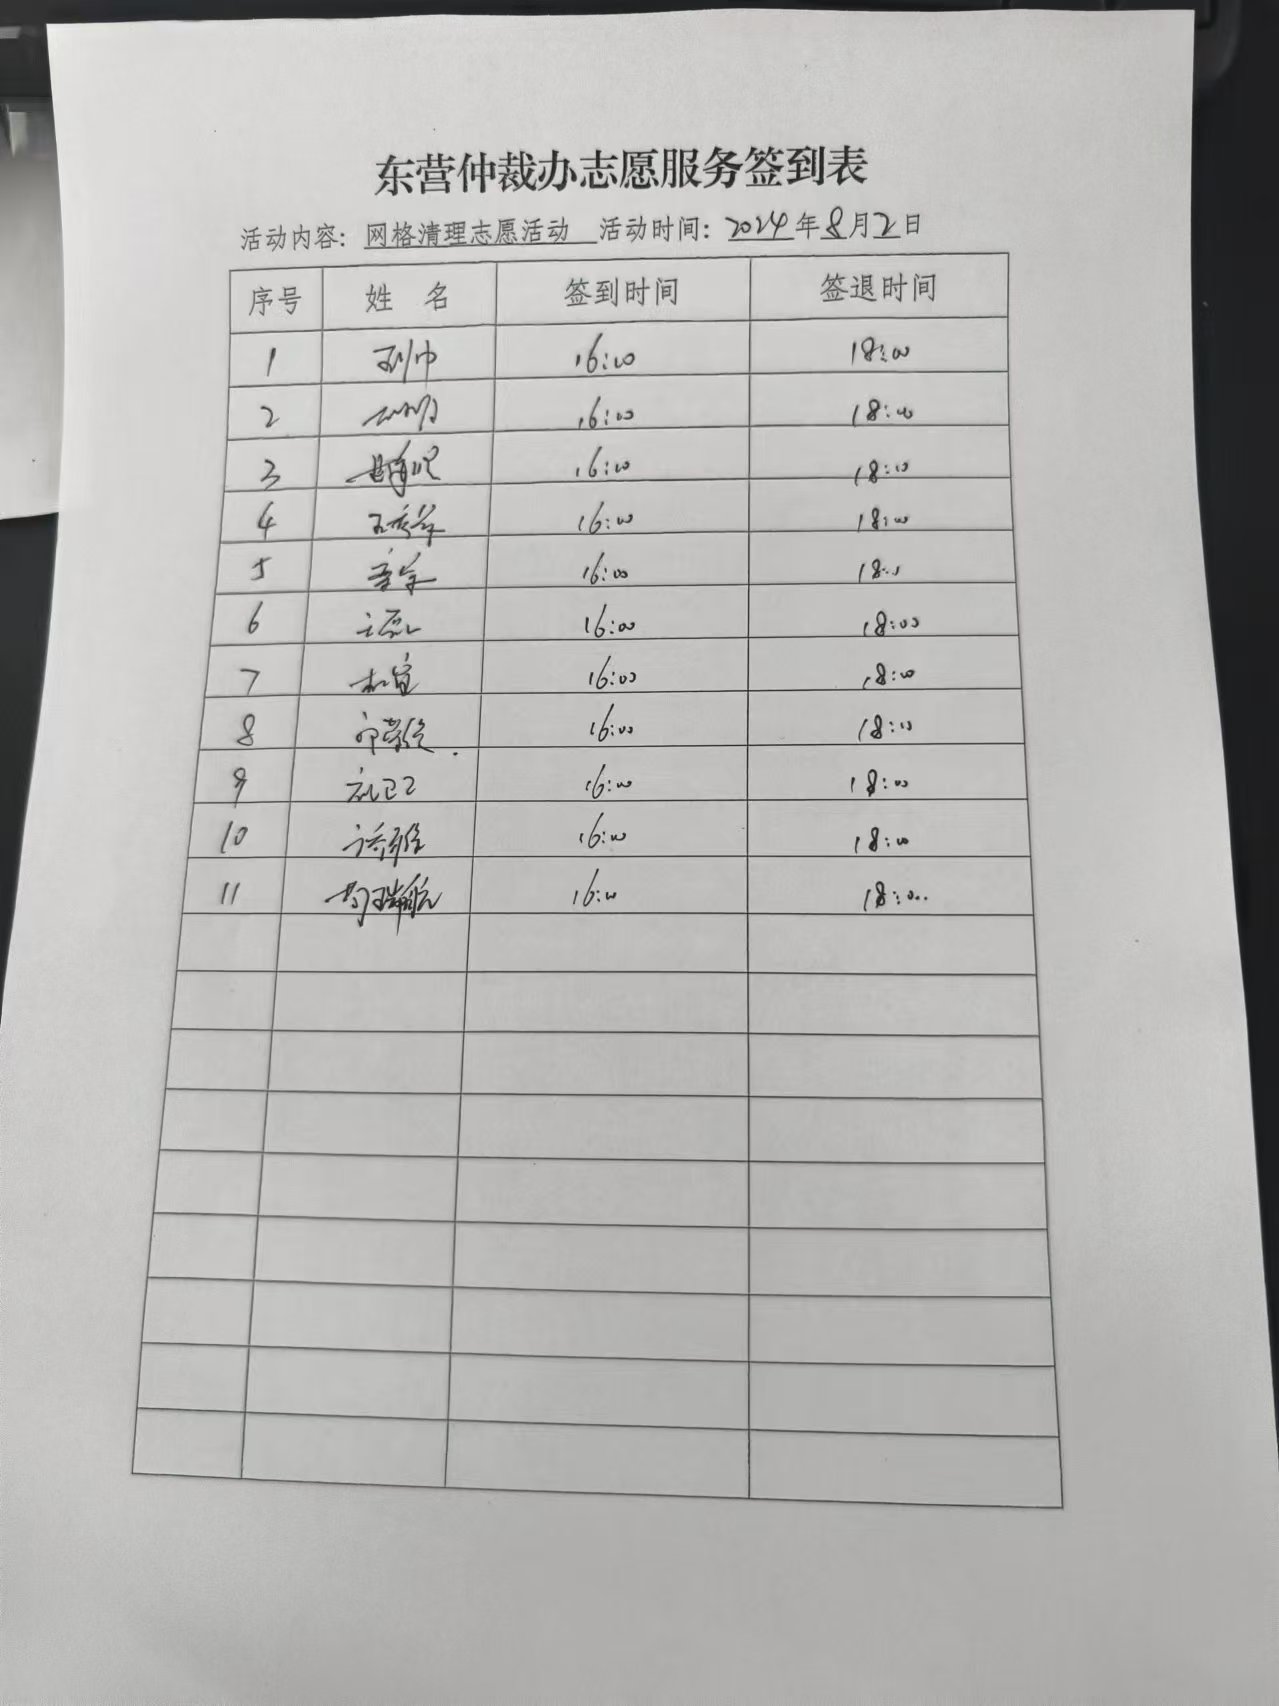 东营仲裁办志愿服务签到表
活动内容：网格清理志愿活动 活动时间：2024年8月2日
序号 姓 名 签到时间 签退时间
1 16:00 18:00
2 16:00 18:00
3 16:00 18:00
4 16:00 18:00
5 16:00 18:00
6 16:00 18:00
7 16:00 18:00
8 16:00 18:00
9 16:00 18:00
10 16:00 18:00
11 16:00 18:00